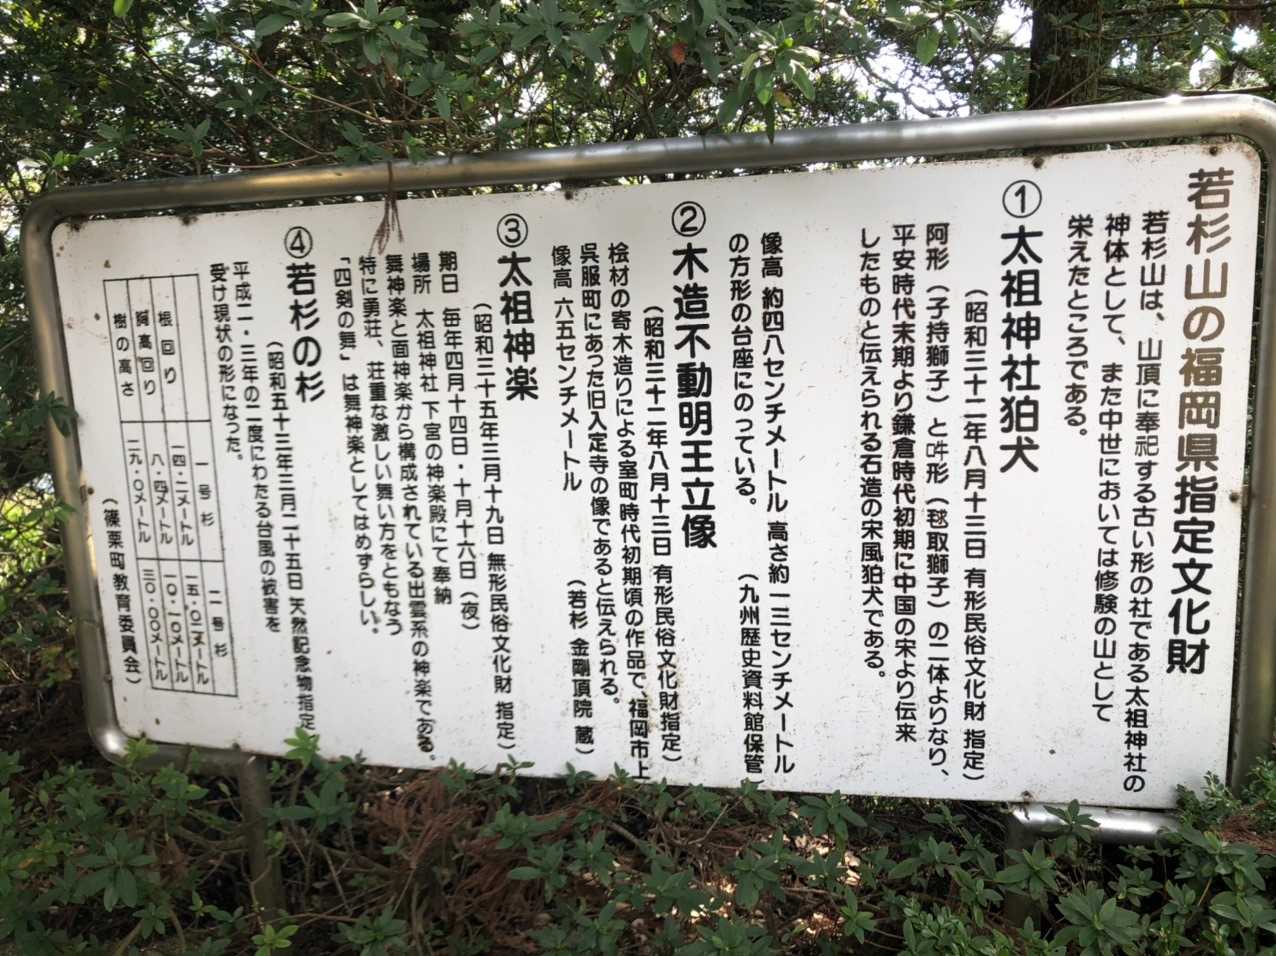 若杉山の福岡県指定文化財
若杉山は、山頂に奉祀する古い形の社である太祖神社の
神体として、また中世においては修験の山として
栄えたところである。
①太祖神社狛犬
（昭和三十二年八月十三日 有形民俗文化財指定）
阿形（子持獅子）と吽形（毬取獅子）の二体よりなり、
平安時代末期より鎌倉時代初期に中国の宋より伝来
したものと伝えられる石造の宋風狛犬である。
像高 約四八センチメートル 高さ約一三センチメートル
の方形の台座にのっている。（九州歴史資料館保管）
②木造不動明王立像
（昭和三十二年八月十三日 有形民俗文化財指定）
桧材の寄木造りによる室町時代初期頃の作品で、福岡市上
呉服町にあった旧入定寺の像であると伝えられる。
像高 六五センチメートル （若杉 金剛頂院 蔵）
③太祖神楽
（昭和三十五年三月十九日 無形民俗文化財 指定）
期日 毎年四月十四日・十月十六日（夜）
場所 太祖神社下宮の神楽殿にて奉納
舞神楽と面神楽から構成されている出雲系の神楽である。
特に勇荘、荘重な激しい舞い方をともなう
「四剣の舞」は舞神楽としてはめずらしい。
④若杉の杉
（昭和五十三年三月二十五日 天然記念物指定
平成二・三年の二度にわたる台風の被害を
受け現状の形になった。
一号杉 二号杉
根回り 一四・二メートル 一五・〇二メートル
胸高回り 八・四メートル 一〇・一〇メートル
樹の高さ 二九・〇メートル 三〇・〇〇メートル
（篠栗町教育委員会）